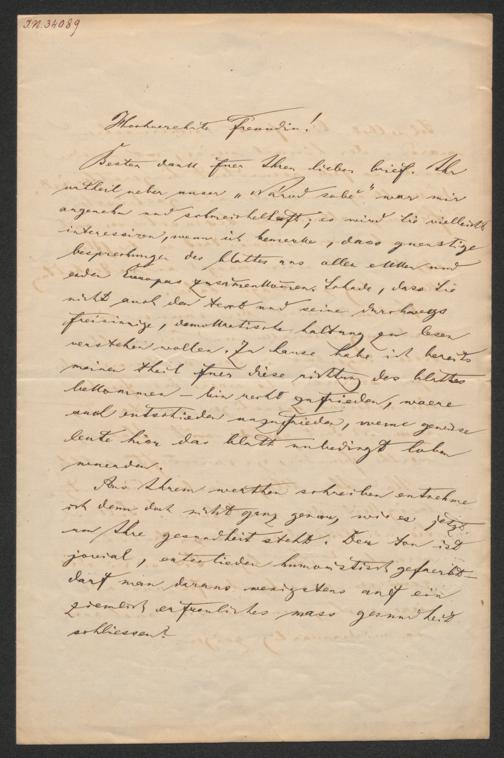 J.N. 34089
Hochverehrte Freundin!
Besten dank fuer Ihren lieben brief. Ihr
urtheil ueber unser „Národ sobě“ war mir
angenehm und schmeichelhaft; es wird Sie vielleicht
interessiren, wenn ich bemerke, dass guenstige
besprechungen des blattes aus allen ecken und
enden Europas zusammenkommen. Schade, dass Sie
nicht auch den text und seine durchwegs
freisinnige, demokratische haltung zu lesen
verstehen wollen. Zu hause habe ich bereits
meinen theil fuer diese richtung des blattes
bekommen – bin recht zufrieden, waere
auch entschieden unzufrieden, wenn gewisse
leute hier das blatt unbedingt loben
wuerden.
Aus Ihrem werthen schreiben entnehme
ich denn doch nicht ganz genau, wie es jetzt
um Ihre gesundheit steht. Der ton ist
jovial, entschieden humoristisch gefaerbt –
darf man daraus wenigstens auf ein
ziemlich erfreuliches mass gesundheit
schliessen?